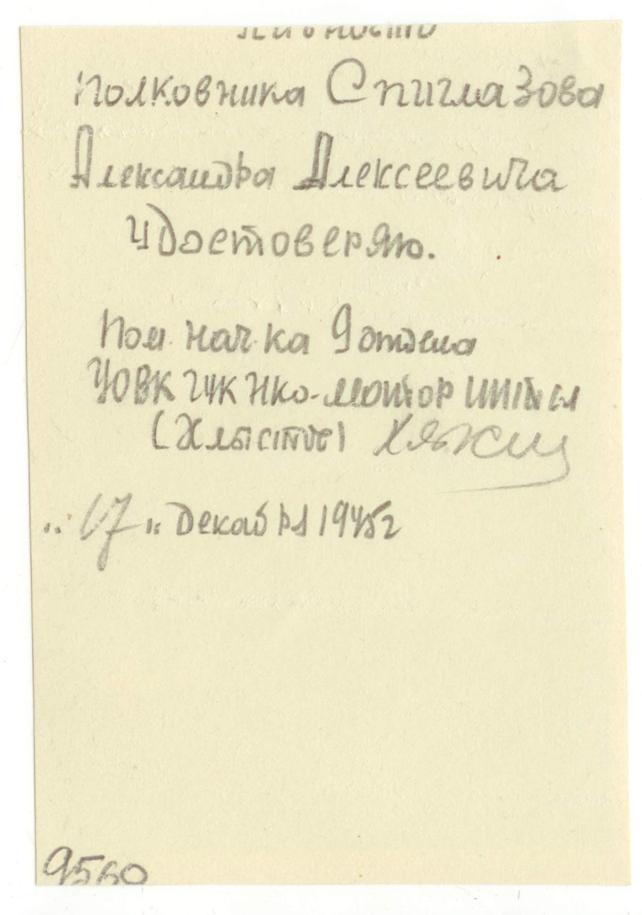 Личность
Полковника Спиглазова
Александра Алексеевича
удостоверяю.
Пом. нач-ка 9 отдела
УОВК ГУК НКО-майор
(Хлыстов)
"17" декабря 1945г
9560